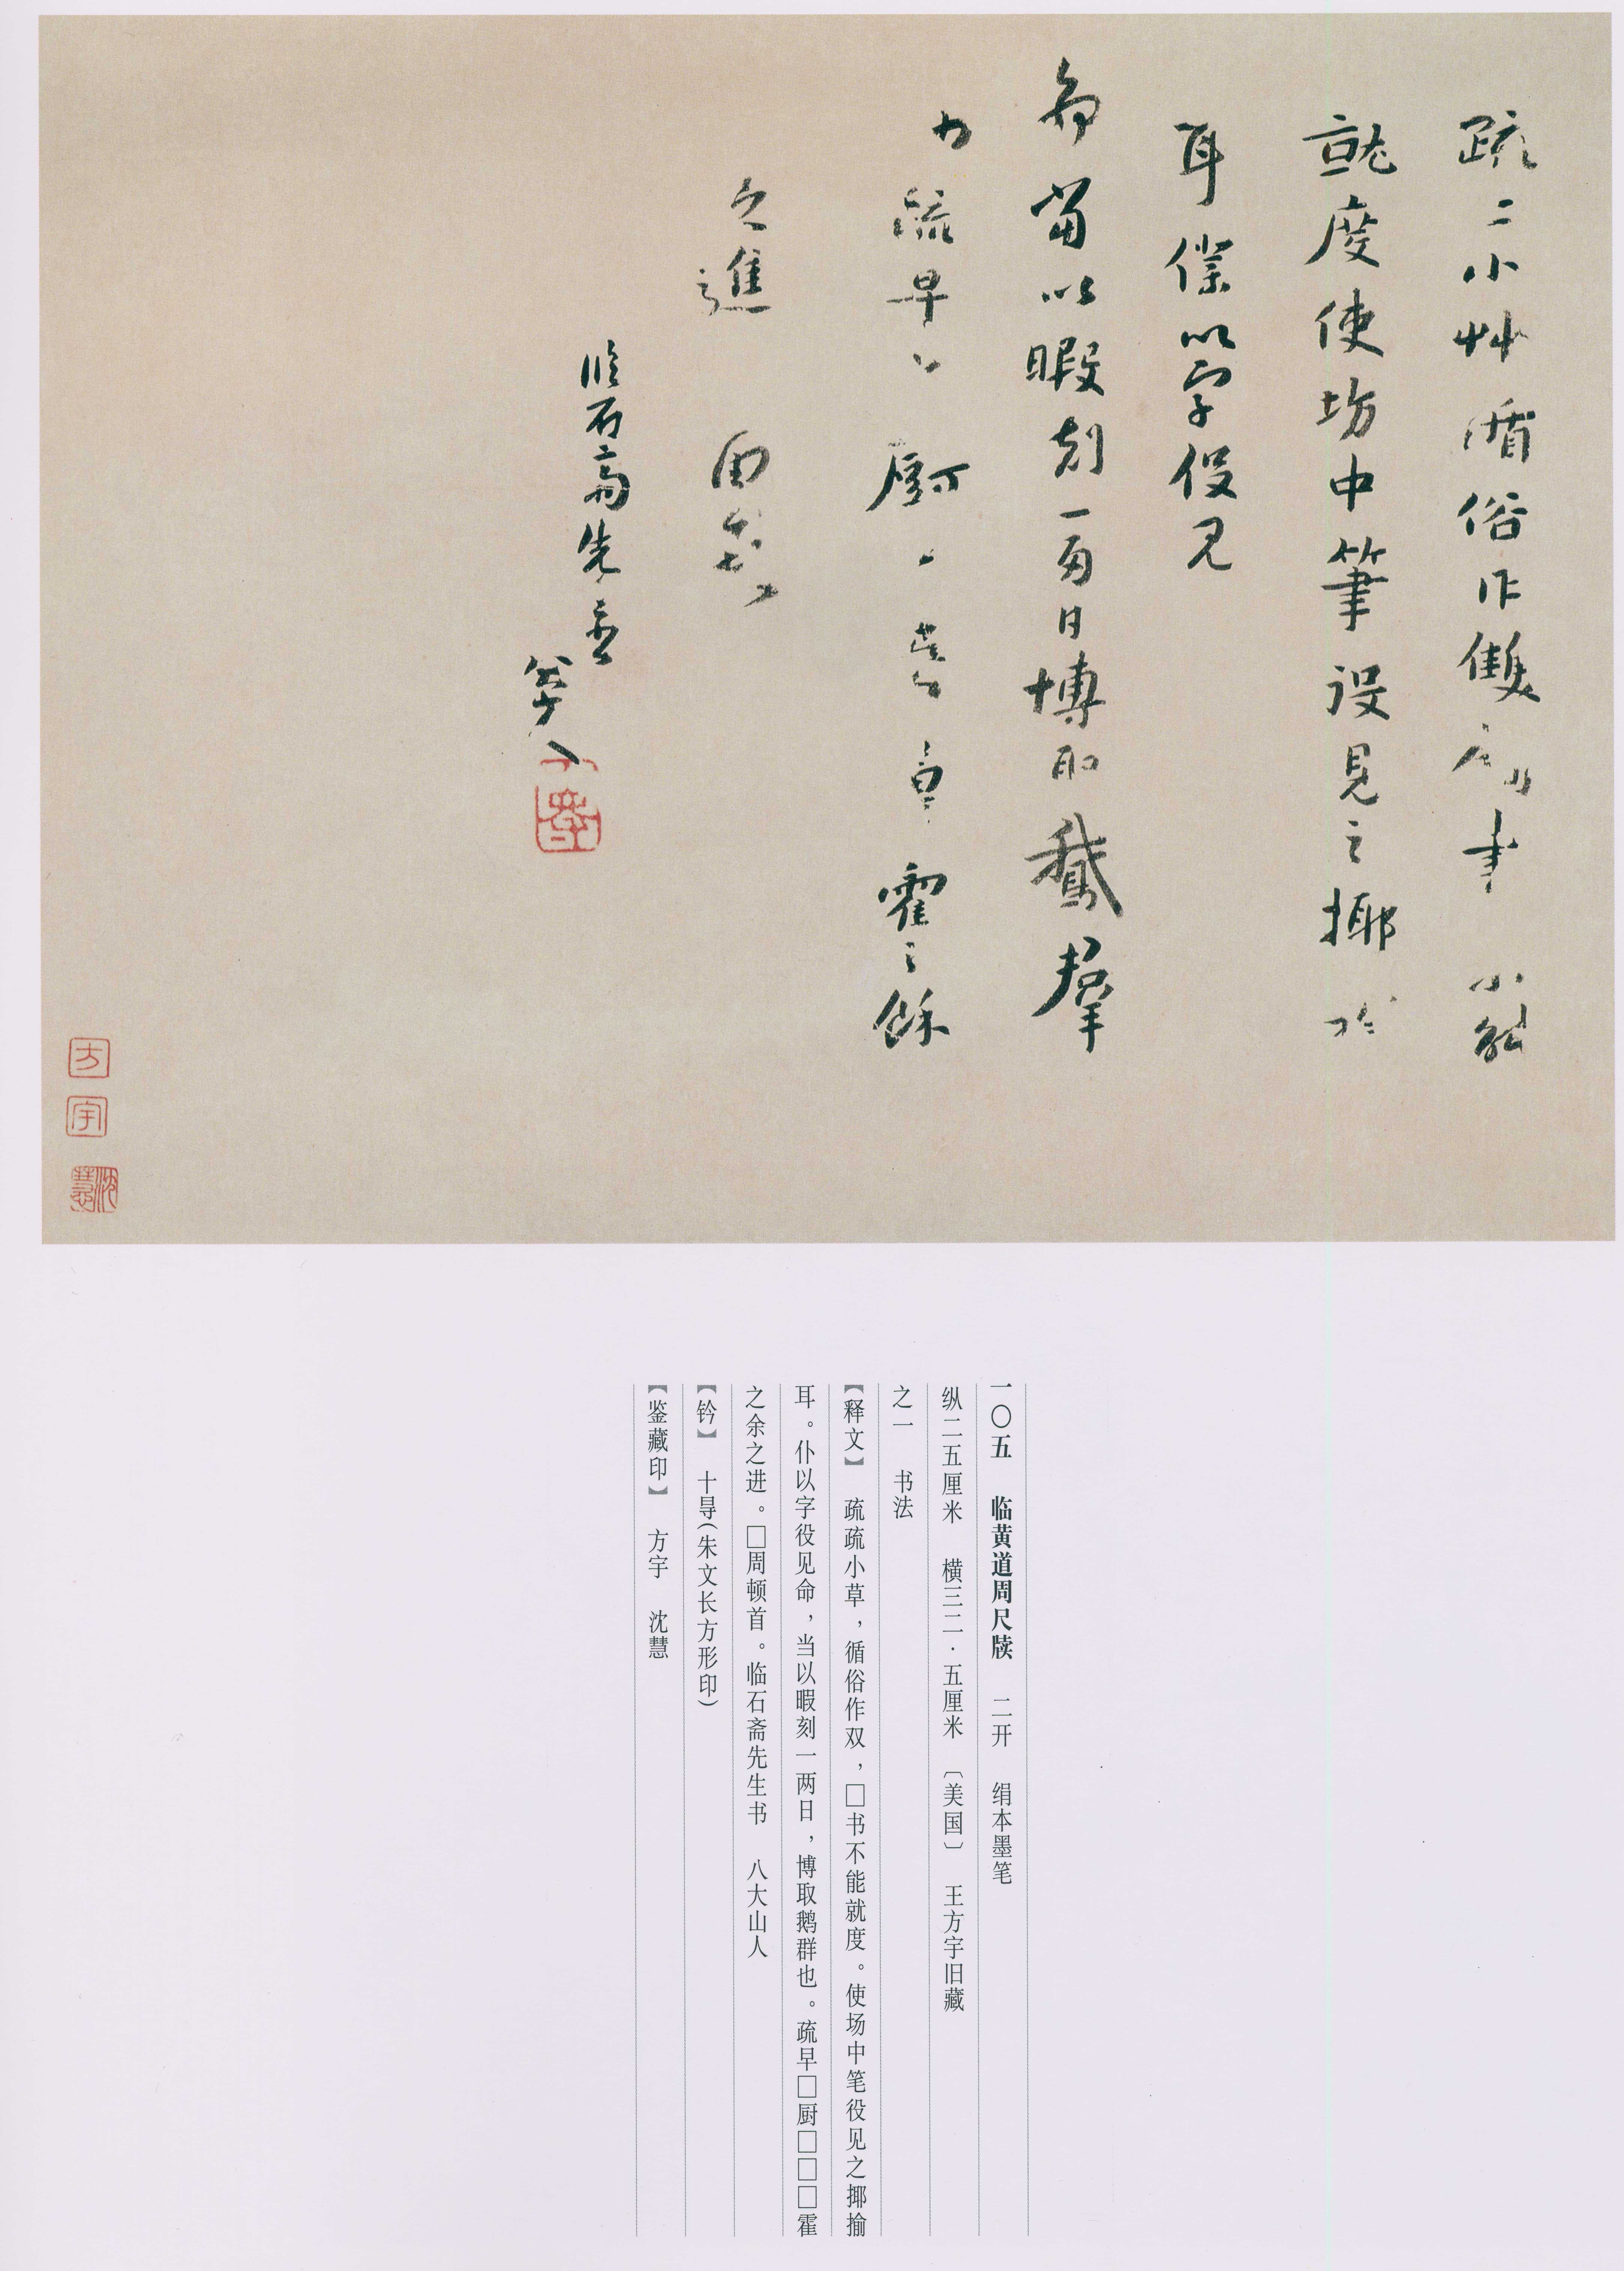 疏〻小艸循俗作雙
書
就度使坊中筆役見之揶
耳僕以字役見
命當以暇刻一兩日博取鵝羣
也疏早 廚 霍之餘
之進 周
臨石齋先生書
八大山人
方
宇
沈慧
一〇五 临黄道周尺牍 二开 绢本墨笔
纵二五厘米 横三二·五厘米 〔美国〕 王方宇旧藏
之一 书法
【释文】 疏疏小草，循俗作双，□书不能就度。使场中笔役见之揶揄
耳。仆以字役见命，当以暇刻一两日，博取鹅群也。疏早□厨□□□霍
之余之进。□周顿首。临石斋先生书 八大山人
【钤】 十㝵（朱文长方形印）
【鉴藏印】 方宇 沈慧